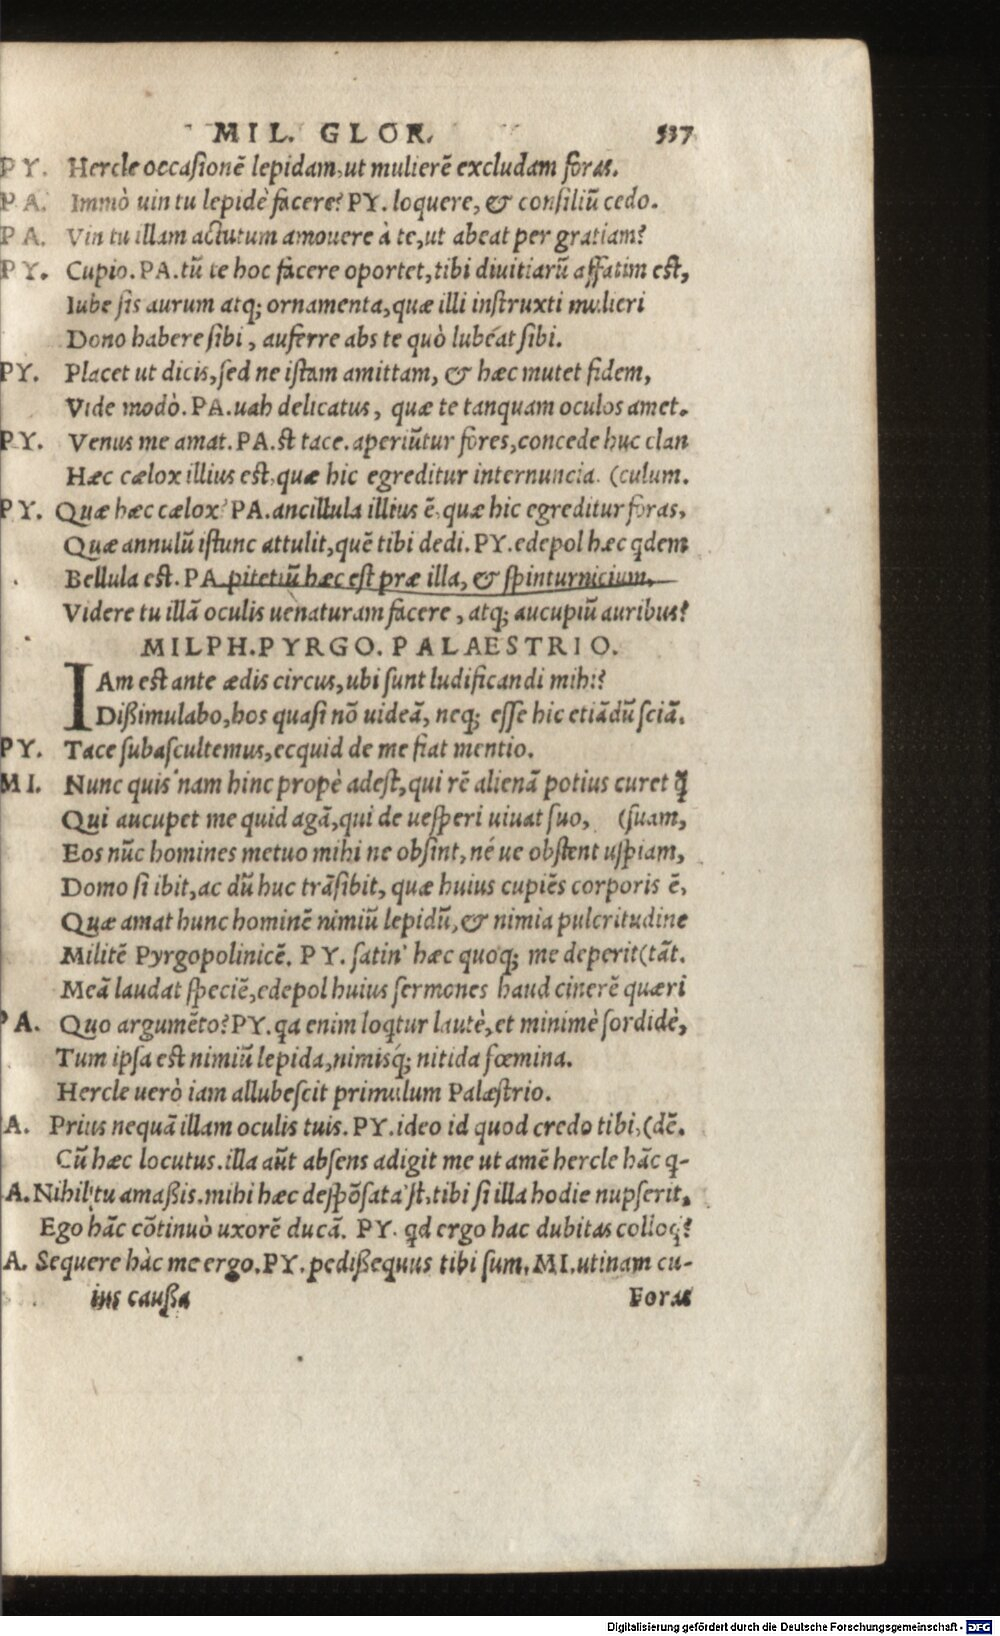 MIL. GLOR. 537
PY. Hercle occasionẽ lepidam, ut mulierẽ excludam foras.
PA. Immò uin tu lepidè facere? PY. loquere, & consiliũ cedo.
PA. Vin tu illam actutum amouere à te, ut abeat per gratiam?
PY. Cupio. PA. tũ te hoc facere oportet, tibi diuitiarũ affatim est,
Iube sis aurum atq; ornamenta, quæ illi instruxti mulieri
Dono habere sibi, auferre abs te quò lubéat sibi.
PY. Placet ut dicis, sed ne istam amittam, & hæc mutet fidem,
Vide modò. PA. uah delicatus, quæ te tanquam oculos amet.
PY. Venus me amat. PA. st tace. aperiũtur fores, concede huc clan
Hæc cælox illius est, quæ hic egreditur internuncia. (culum.
PY. Quæ hæc cælox? PA. ancillula illius ẽ, quæ hic egreditur foras,
Quæ annulũ istunc attulit, quẽ tibi dedi. PY. edepol hæc qdem
Bellula est. PA. pitetiũ hæc est præ illa, & spinturnicium,
Videre tu illã oculis uenaturam facere, atq; aucupiũ auribus?
MILPH. PYRGO. PALAESTRIO.
IAm est ante ædis circus, ubi sunt ludificandi mihi?
Dißimulabo, hos quasi nõ uideã, neq; esse hic etiãdũ sciã.
PY. Tace subascultemus, ecquid de me fiat mentio.
MI. Nunc quis'nam hinc propè adest, qui rẽ alienã potius curet q̃
Qui aucupet me quid agã, qui de uesperi uiuat suo, (suam,
Eos nũc homines metuo mihi ne obsint, né ue obstent uspiam,
Domo si ibit, ac dũ huc trãsibit, quæ huius cupiẽs corporis ẽ,
Quæ amat hunc hominẽ nimiũ lepidũ, & nimia pulcritudine
Militẽ Pyrgopolinicẽ. PY. satin' hæc quoq; me deperit (tãt.
Meã laudat speciẽ, edepol huius sermones haud cinerẽ quæri
PA. Quo argumẽto? PY. qa enim loqtur lautè, et minimè sordidè,
Tum ipsa est nimiũ lepida, nimisq́; nitida fœmina.
Hercle uerò iam allubescit primulum Palæstrio.
A. Prius nequã illam oculis tuis. PY. ideo id quod credo tibi, (dẽ.
Cũ hæc locutus. illa aũt absens adigit me ut amẽ hercle hãc q-
A. Nihil tu amaßis. mihi hæc despõsata'st, tibi si illa hodie nupserit,
Ego hãc cõtinuò uxorẽ ducã. PY. qd ergo hac dubitas colloq?
A. Sequere hàc me ergo. PY. pedißequus tibi sum. MI. utinam cu-
ius caußa Foras
Digitalisierung gefördert durch die Deutsche Forschungsgemeinschaft - DFG